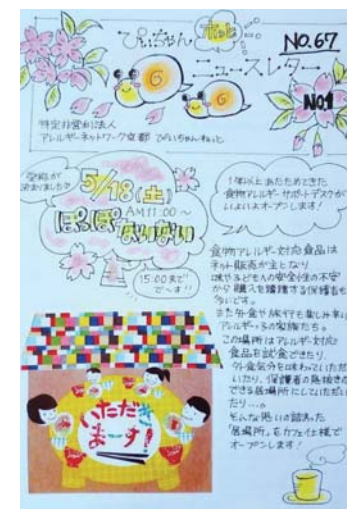 ぴぃちゃん ホッと
NO.67
ニュースレター
NO.1
特定非営利活動法人
アレルギーネットワーク京都 ぴいちゃんねっと
決まりました♡
5/18(土)
AM11:00〜
ぽっぽ
ないない
15:00まで
で〜す!!
1年以上あたためてきた
食物アレルギーサポートデスクが
いよいよオープンします!
食物アレルギー対応食品は
ネット販売が主となり
味や子どもの安全性の不安
から購入を躊躇する保護者も
多いです。
また外食や旅行も楽しみ辛い
アレルギーっ子の家族たち。
この場所はアレルギー対応
食品を試食できたり、
外食気分を味わっていただ
いたり、保護者の息抜きの
できる居場所にしていただい
たり…。
そんな思いの詰まった
「居場所」をカフェ仕様で
オープンします!
いただき
ます!